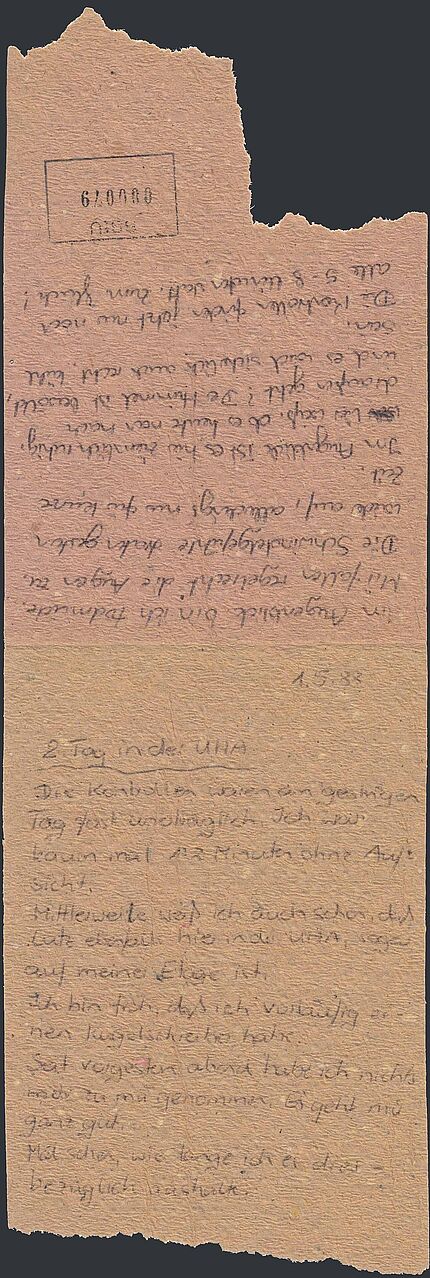 1.5.88
2. Tag in der UHA
Die Kontrollen waren am gestrigen
Tag fast unerträglich. Ich war
kaum mal 1-2 Minuten ohne Auf-
sicht.
Mittlerweile weiß ich auch schon, daß
Lutz ebenfalls hier in der UHA, sogar
auf meiner Etage ist.
Ich bin froh, daß ich vorläufig ei-
nen Kugelschreiber habe.
Seit vorgestern abend habe ich nichts
mehr zu mir genommen. Es geht mir
ganz gut.
Mal sehen, wie lange ich es dies-
bezüglich aushalte.
Im Augenblick bin ich todmüde.
Mir fallen regelrecht die Augen zu.
Die Schwindelgefühle
auf, allerdings nur für kurze
Zeit.
Im Augenblick ist es hier ziemlich ruhig.
ob es heute noch nach
draußen geht? Der Himmel ist bewölkt,
und es wird sicherlich auch recht kühl
sein.
Die Kontrollen finden jetzt nur noch
alle 5-8 Minuten statt. Zum Glück!
BStU
000079